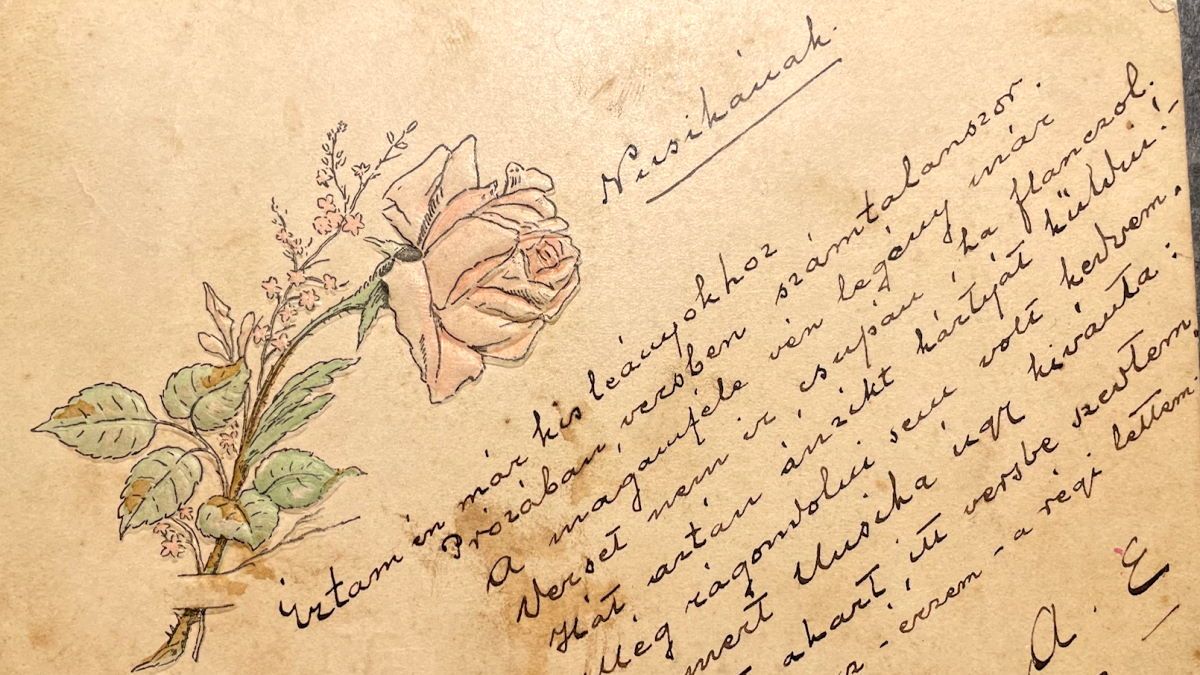 Nusikának.
Írtam én már kisleányokhoz
Prózában, versben számtalanszor.
A magamféle vén legény már
Verset nem ir csupán ha flanczol.
Hát aztán ánzikt kártyát küldni!
Még rágondolni sem volt kedvem.
mert Nusika úgy kivánta:
akart, itt versbe szedtem,
érzem - a régi lettem.
A. E